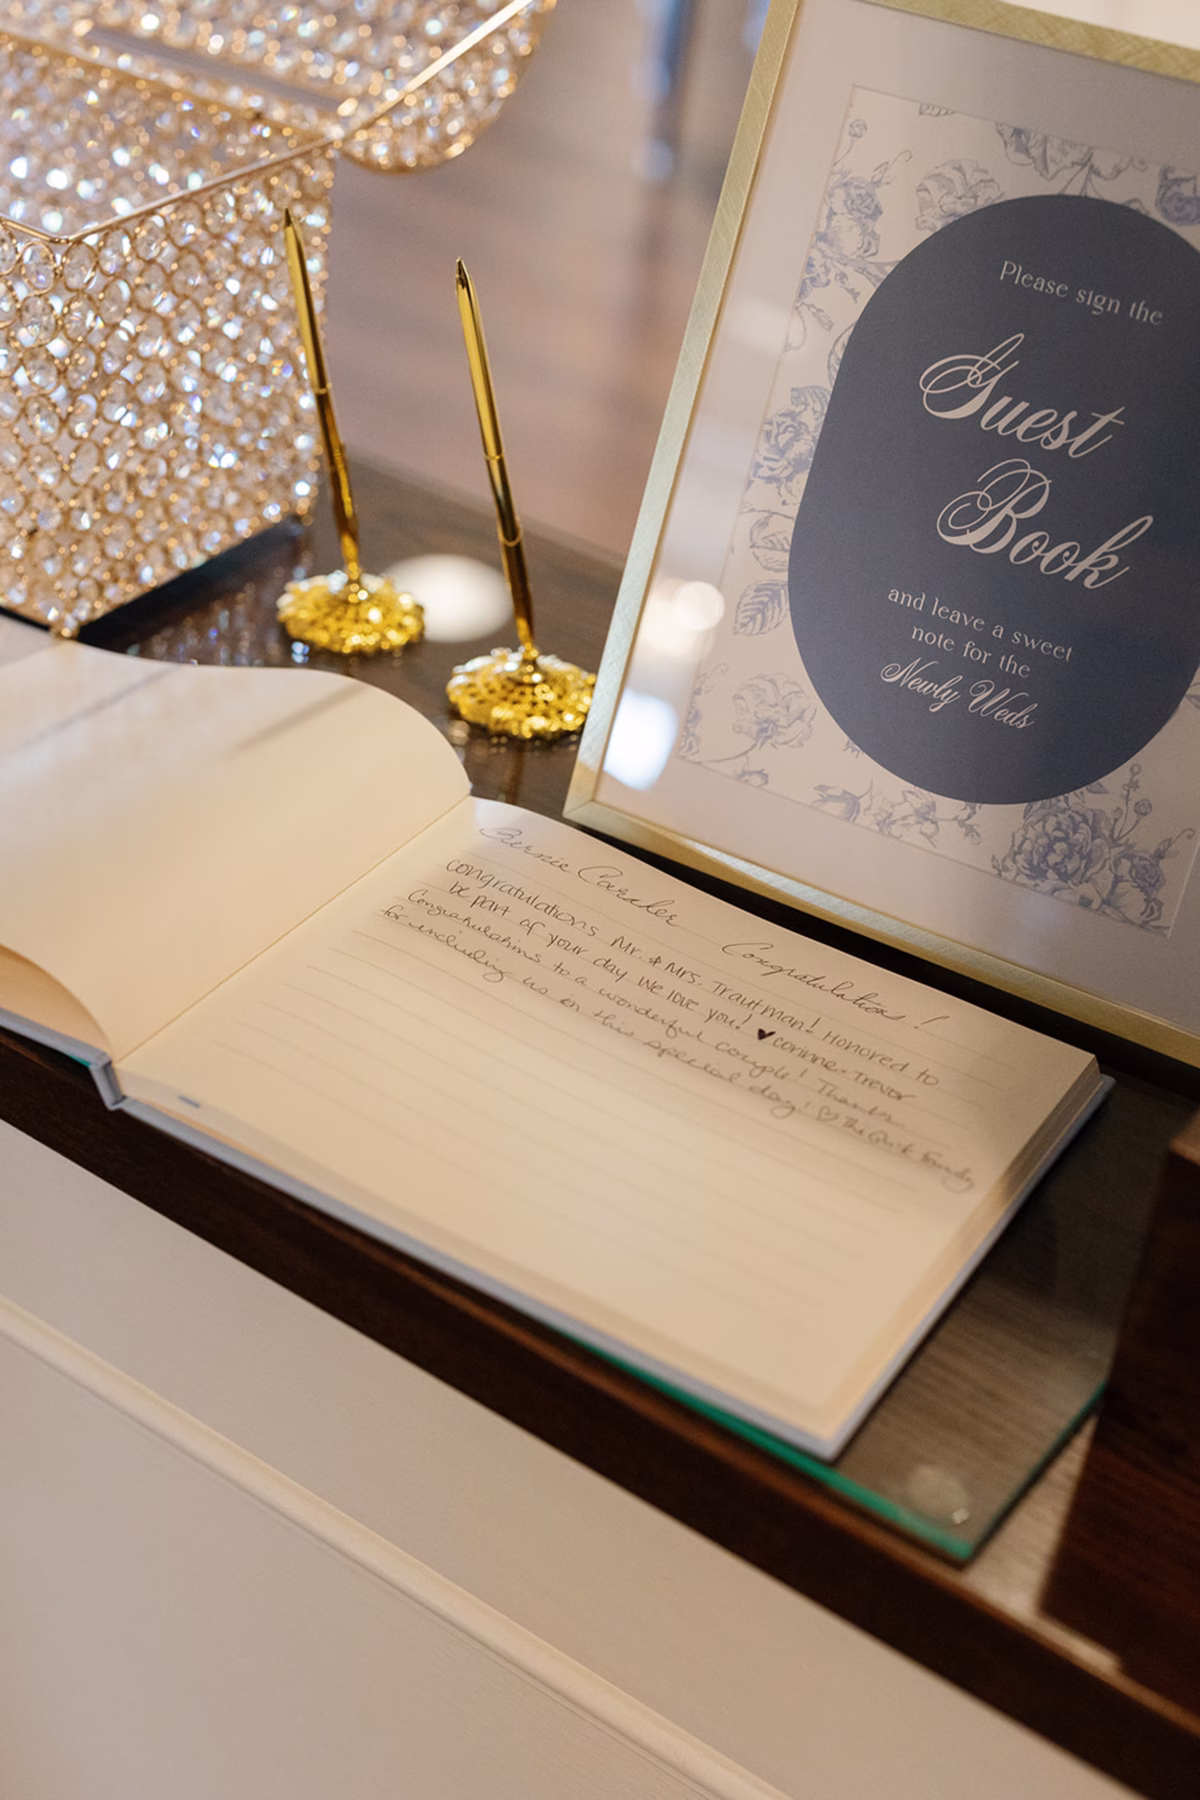 Please sign the
Guest
Book
and leave a sweet
note for the
Newly Weds
Congratulations!
congratulations Mr. & Mrs. Trautman! Honored to
be part of your day we love you! ♥ corinne + Trevor
Congratulations to a wonderful couple! Thanks
for including us on this special day! ♡ The Family